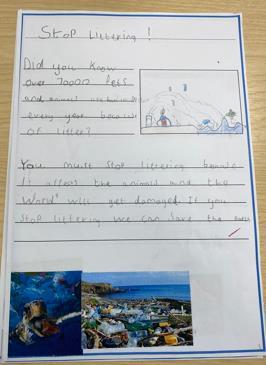 Stop Littering!
Did you know
over 70000 Pets
and animal
every year because
of litter?
You must stop littering because
it affects the animals and the
World will get damaged. If you
stop littering we can save the